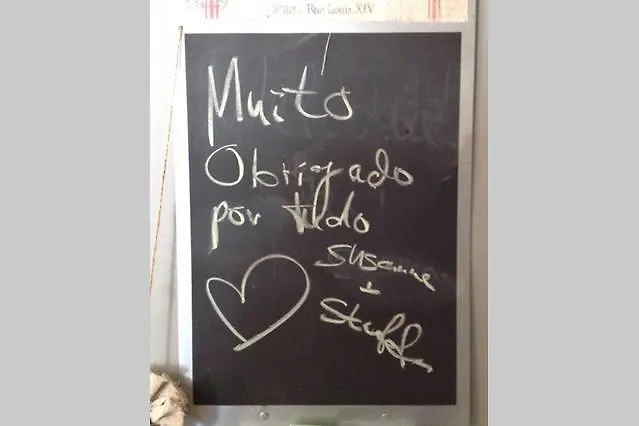 N° 318 . Rue Louis XIV
Muito
Obrigado
por tudo
Susanne
+